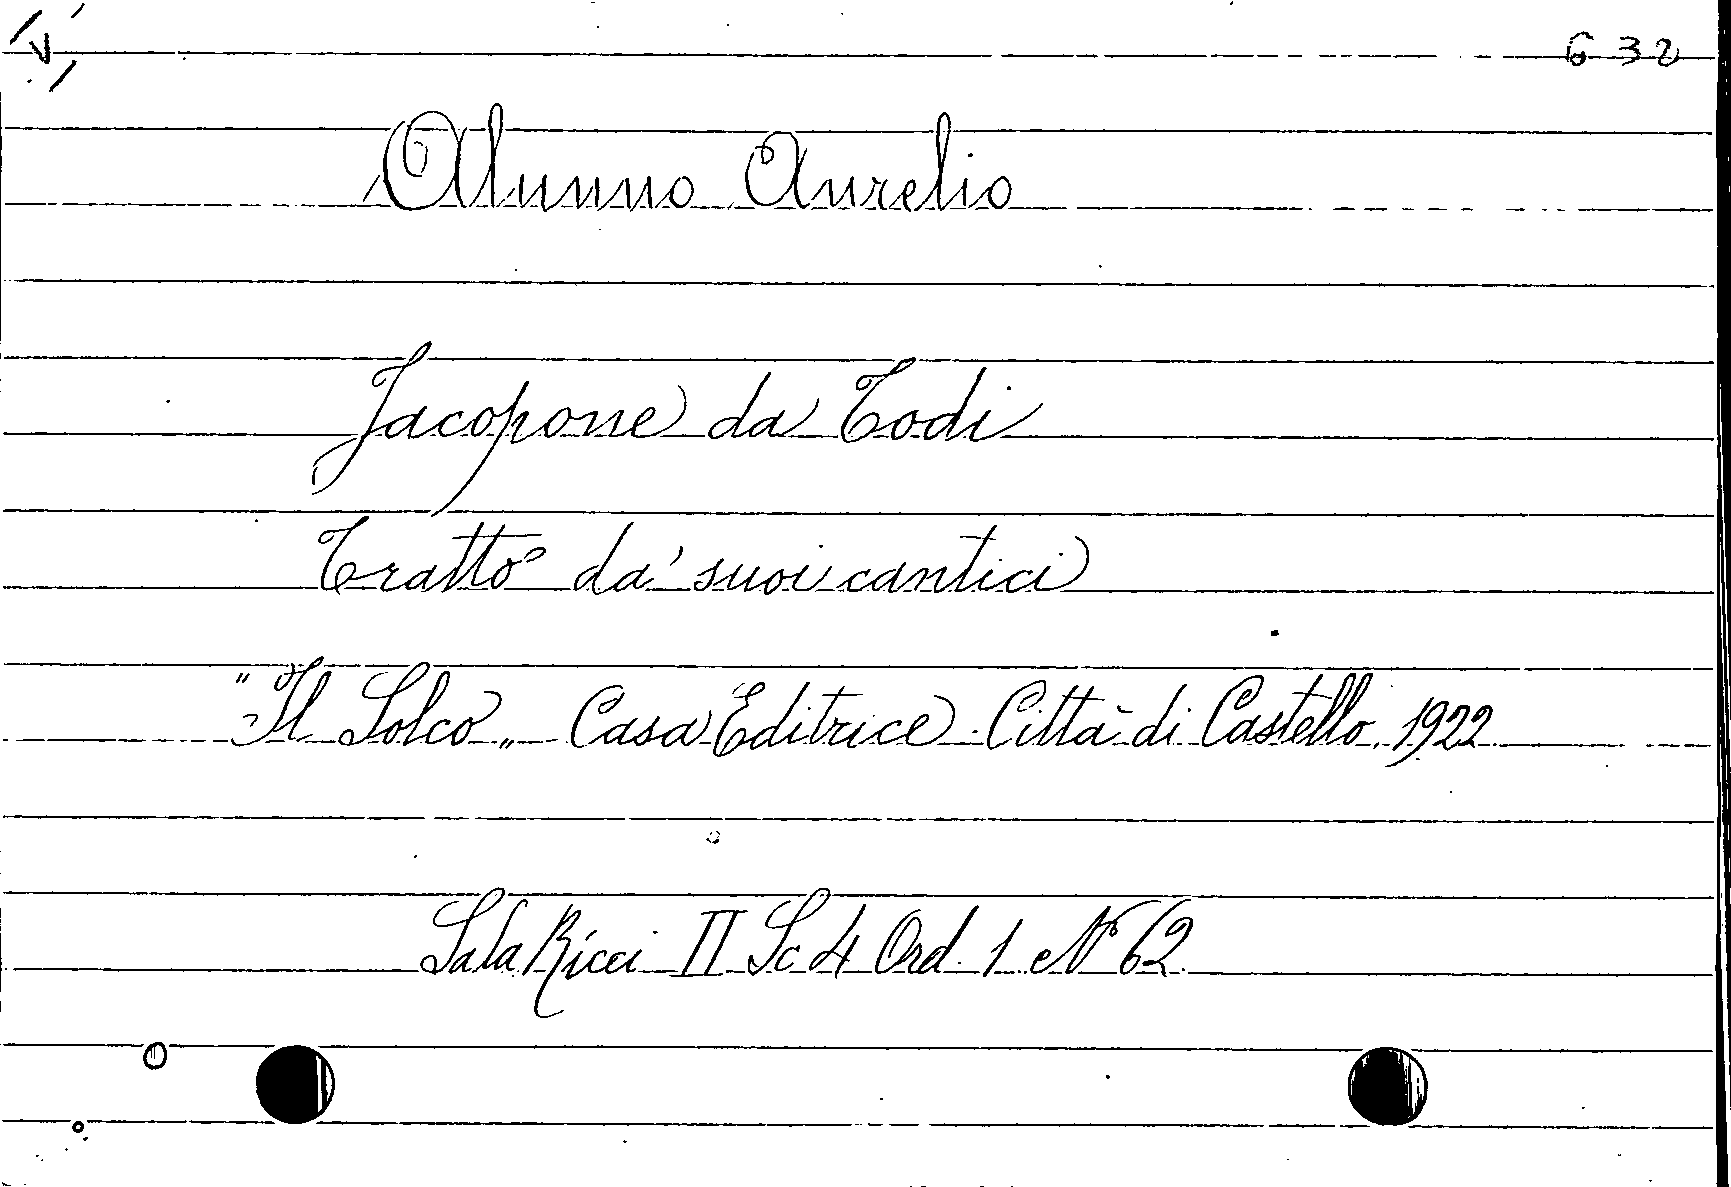 V
632
Alunno Aurelio
Jacopone da Todi
Tratto da' suoi cantici
"Il Solco„ Casa Editrice. Città di Castello. 1922
Sala Ricci II Sc 4 Ord. 1 N° 62